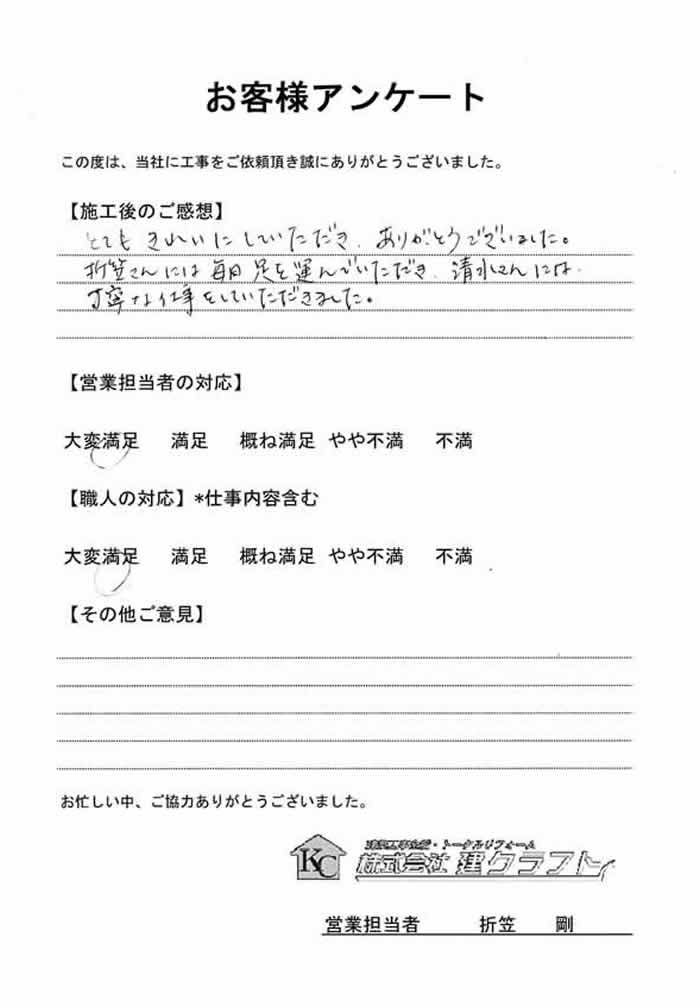 お客様アンケート
この度は、当社に工事をご依頼頂き誠にありがとうございました。
【施工後のご感想】
とてもきれいにしていただき、ありがとうございました。
折笠さんには毎日足を運んでいただき、清水さんには
丁寧な仕事をしていただきました。
【営業担当者の対応】
大変満足 満足 概ね満足 やや不満 不満
【職人の対応】*仕事内容含む
大変満足 満足 概ね満足 やや不満 不満
【その他ご意見】
お忙しい中、ご協力ありがとうございました。
・トータルリフォーム
KC 株式会社 建クラフト
営業担当者 折笠 剛